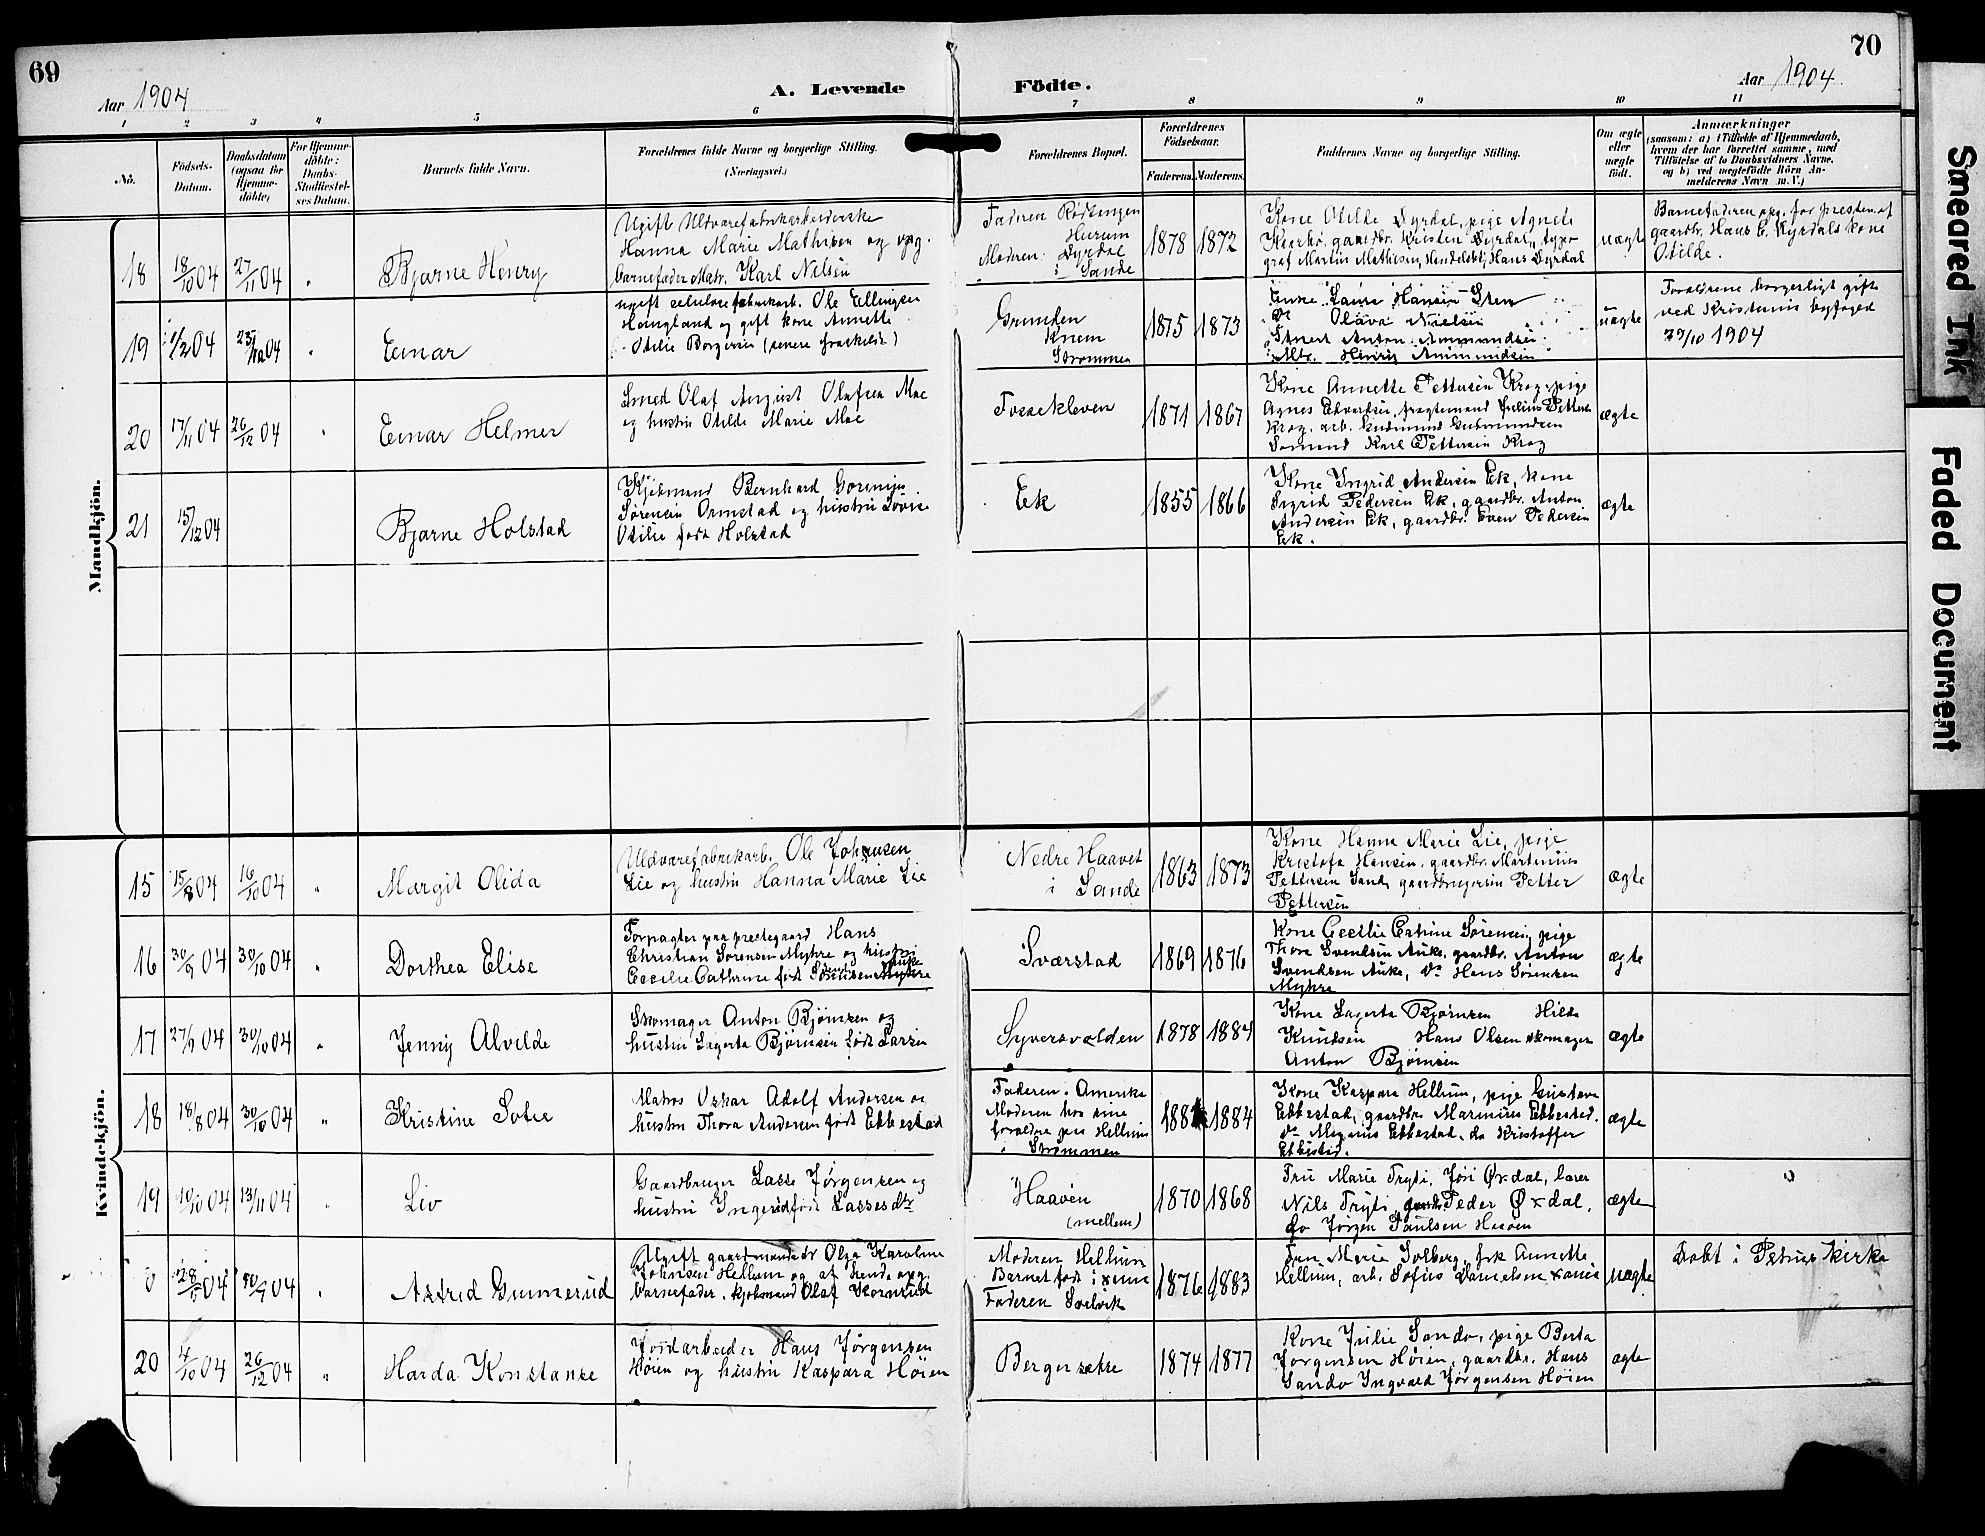 69
70
Aar 1904
A. Levende
Födte.
Aar 1904
1 2 3 4 5 6 7 8 9 10 11
No.
Födsels-
Datum.
Daabsdatum
(ogsaa for
Hjemme-
döbte)
For Hjemme-
döbte:
Daabs-
Stadfæstel-
ses Datum.
Barnets fulde Navn.
Forældrenes fulde Navne og borgerlige Stilling.
(Næringsvei.)
Forældrenes Bopæl.
Forældrenes
Födselsaar.
Faderens.
Moderens.
Faddernes Navne og borgerlige Stilling.
Om ægte
eller
uægte
födt.
Anmærkninger
(saasom: a) i Tilfælde af Hjemmedaab,
hvem der har forrettet samme, med
Tilföielse af to Daabsvidners Navne,
og b) ved uægtefödte Börn An-
melderens Navn m. V.)
Mandkjön.
18 18/10 04 27/11 04 " Bjarne Henry
Ugift Uldvarefabrikarbeiderske
Hanna Marie Mathisen og opg.
barnefader Matr. Karl Nilsen
Faderen Rødtangen
Hurum
Moderen: Dyrdal
i Sande
1878 1872
Kone Otilde Dyrdal, pige Agnete
gaardbr. Kristen Dyrdal, typo-
graf Martin Mathisen, Handelsbtj Hans Dyrdal
uægte
Barnefaderen opg. for presten af
gaardbr. Hans C. Dyrdals kone
Otilde.
19 1/2 04 23/10 04 " Einar
ugift celulosefabrikarb. Ole Ellingsen
Haugland og gift kone Annette
Otilie Borgersen (senere fraskildt)
Grunden
Knem
Strømmen
1875 1873
Enke Laura Hansen Sten
Do Olava Nielsen
Anton Ammundsen
Mtr. Henrik Ammundsen
uægte
Forældrene borgerligt gift
ved Kristiania byfoged
29/10 1904
20 17/11 04 26/12 04 " Einar Helmer
Smed Olaf August Olafsen Moe
og hustru Otilde Marie Moe
Fossekleven
1871 1867
Kone Annette Pettersen Krog, pige
Agnes Edvardsen, fragtemand Julius Petters.
Krog, arb. Gudmund Gudmundsen
Sømand Karl Pettersen Krog
ægte
21 15/12 04 Bjarne Holstad
Kjøbmand Bernhard
Sørensen Ormstad og hustru Lovise
Otilie født Holstad
Ek
1855 1866
Kone Ingrid Andersen Ek, kone
Sigrid Pedersen Ek, gaardbr. Anton
Andersen Ek, gaardbr. Even Pedersen
Ek.
ægte
Kvindekjön.
15 15/8 04 16/10 04 " Margit Olida
Uldvarefabrikarb. Ole Johansen
Lie og hustru Hanna Marie Lie
Nedre Haavet
i Sande
1863 1873
Kone Hanna Marie Lie, pige
Kristofa Hansen, gaardbr. Martinius
Pettersen Sand, gaardbrugersøn Petter
Pettersen
ægte
16 30/9 04 30/10 04 " Dorthea Elise
Forpagter paa prestegaard Hans
Christian Sørensen Myhre og hustru
Cecelie Cathrine født Svendsen Auke Myhre
Sværstad
1869 1876
Kone Cecelie Catrine Sørensen, pige
Thora Svendsen Auke, gaardbr. Anton
Svendsen Auke, do Hans Sørensen
Myhre
ægte
17 27/9 04 30/10 04 " Jenny Alvilde
Skomager Anton Bjørnsen og
hustru Lagerta Bjørnsen født Larsen
Syversvolden
1878 1884
Kone Lagerta Bjørnsen Hilda
Knudsen Hans Olsen skomager
Anton Bjørnsen
ægte
18 18/8 04 30/10 04 " Kristine Sofie
Matros Oskar Adolf Andersen og
hustru Thora Andersen født Ebbestad
Faderen: Amerika
Moderen hos sine
forældre paa Hellum
i Strømmen
1884
Kone Kaspara Hellum, pige Gustava
Ebbestad, gaardbr. Marinius Ebbestad,
do Magnus Ebbestad, do Kristoffer
Ebbestad.
ægte
19 10/10 04 13/11 04 " Liv
Gaardbruger Lasse Jørgensen og
hustru Ingerid født Lassesdtr
Haaven
(mellem)
1870 1868
Fru Marie Tryti, Jøri Øxdal, lærer
Nils Tryti, gaardbr. Peder Øxdal,
do Jørgen Paulsen Haaven
ægte
0 28/5 04 10/7 04 " Astrid Gummerud
Ugift gaardmandsdtr Olga Karoline
Johnsen Hellum og af hende opg.
barnefader, kjøbmand Olaf Kornrud
Moderen Hellum
Barnet født i Xania
Faderen Svelvik
1876 1883
Fru Marie Solberg, frk Annette
Hellum, arb. Sofus Danielsen Xania
uægte
Døbt i Petrus kirke
20 4/10 04 26/12 04 " Harda Konstanse
Jordarbeider Hans Jørgensen
Høien og hustru Kaspara Høien
Bergersakre
1874 1877
Kone Julie Sando, pige Berta
Jørgensen Høien, gaardbr. Hans
Sando Ingvald Jørgensen Høien
ægte
Smeared Ink
Faded Document